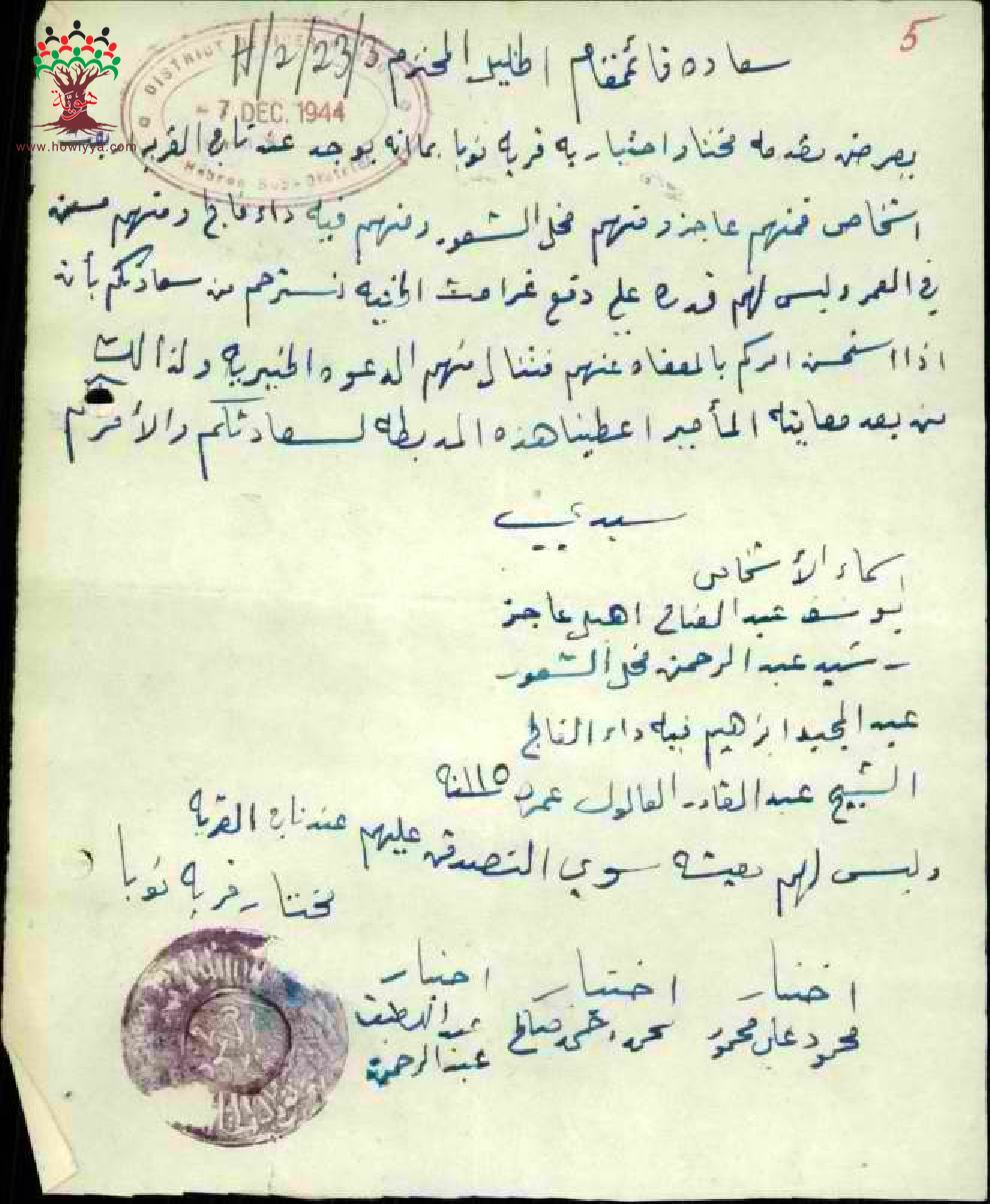 5
H/2/23/3
DISTRICT
- 7 DEC. 1944
Hebron Sub-District
هوية
www.howiyya.com
سعاده قائمقام الخليل المحترم
يعرض بقدمه مختار واختياريه قريه نوبا بما انه يوجد عند تابع القريه بعض
اشخاص فمنهم عاجز ومنهم مختل الشعور ومنهم فيه داء فالج ومنهم مسن
في العمر وليس لهم قدره علي دفع غرامت الجنيه نسترحم من سعادتكم بأنه
اذا استحسن امركم بالمعفاه عنهم فتنال منهم الدعوه الخيريه ولذالك
من بعد معاينة المأمير اعطينا هذه المدبطه لسعادتكم والأمركم
سيدي
اسماء الأشخاص
يوسف عبد الفتاح اهبل عاجز
رشيد عبد الرحمن مختل الشعور
عبد المجيد ابرهيم فيه داء الفالج
الشيخ عبد القادر العالول عمره ١١٥ سنه
وليس لهم معيشه سوي التصدق عليهم عند تابع القريه
مختار قريه نوبا
اختيار
محمود علي محمود
اختيار
محمد احمد صالح
اختيار
عبد اللطيف
عبد الرحمن